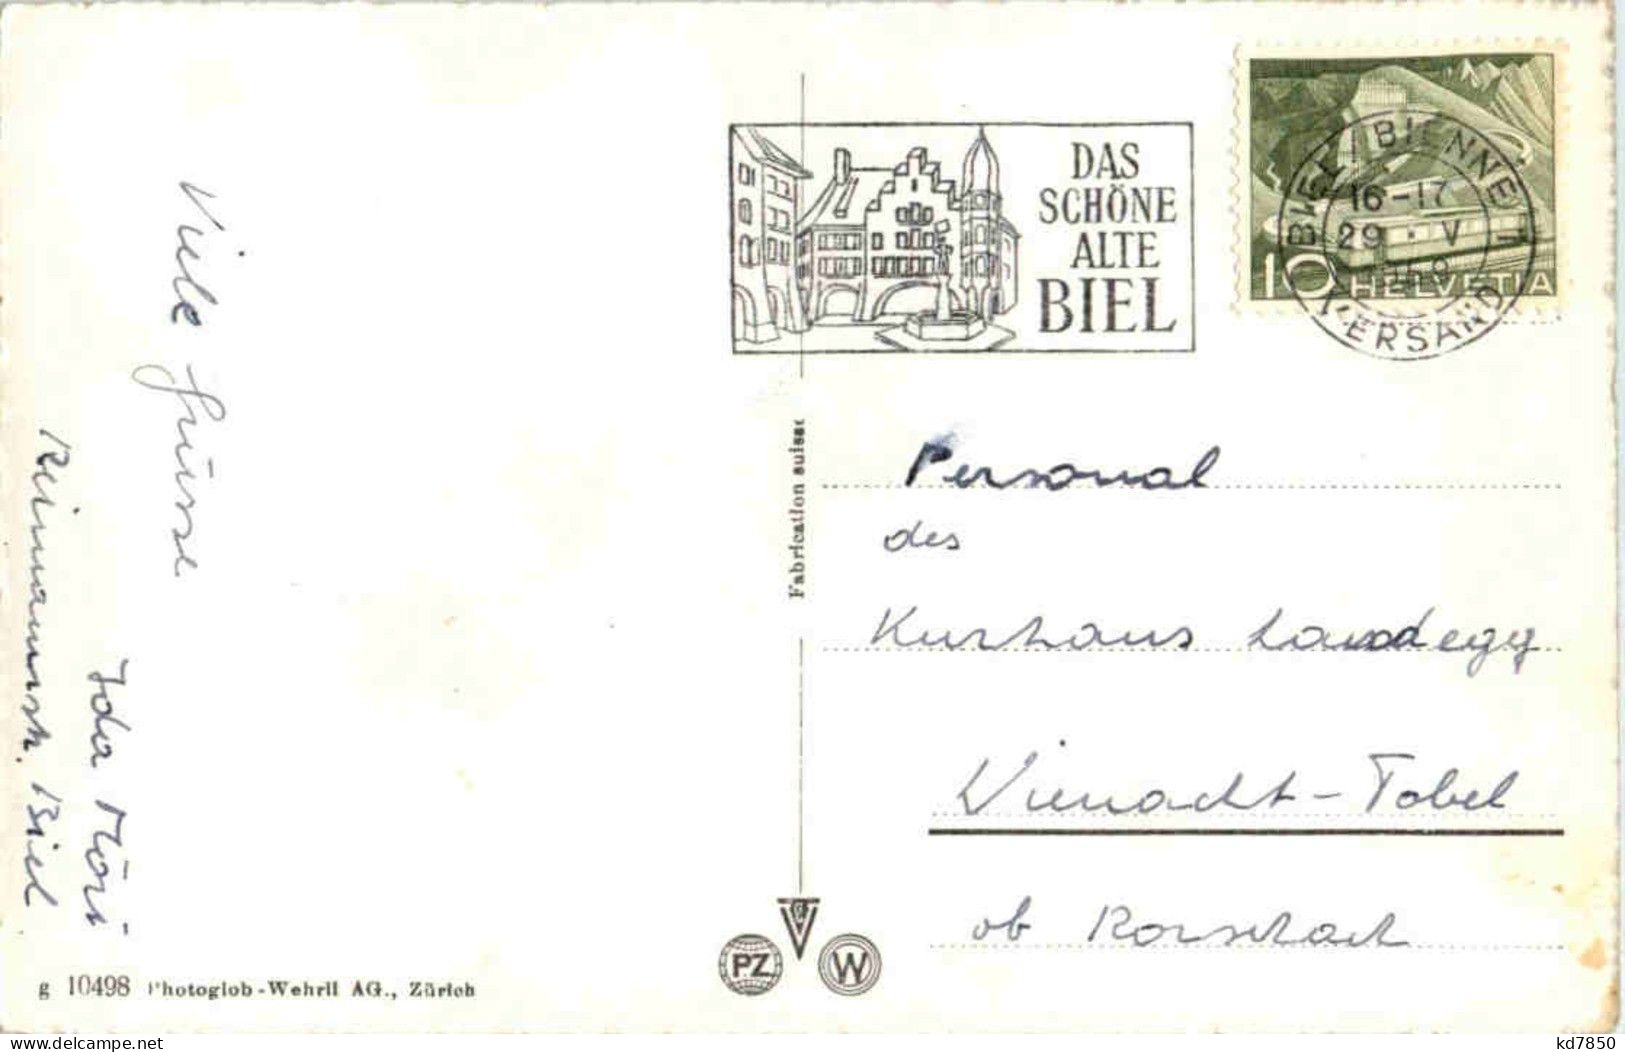 Viele Grüsse
Ida Möri
Reimannstr. Biel
DAS
SCHÖNE
ALTE
BIEL
BIEL/BIENNE 1
16-17
29. V
VERSAND
10 HELVETIA
Fabrication suisse
Personal
des
Kurhaus Landegg
Wienacht-Tobel
ob Rorschach
PZ
W
g 10498 Photoglob-Wehrli AG., Zürich
kd7850